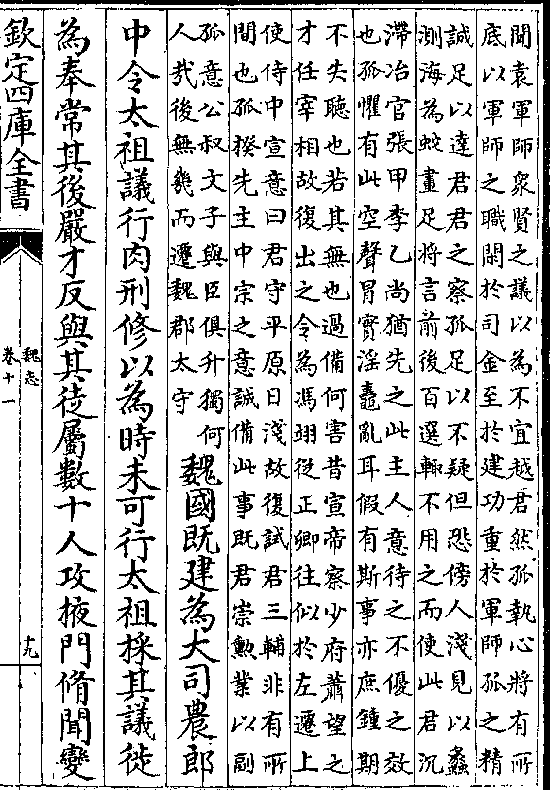 聞袁軍師衆賢之議以為不宜越君然孤執心將有所
底以軍師之職閑於司金至於建功重於軍師孤之精
誠足以達君君之察孤足以不疑但恐傍人淺見以蠡
測海為蛇畫足將言前後百選輒不用之而使此君沉
滯冶官張甲李乙尚猶先之此主人意待之不優之效
也孤懼有此空聲冒實淫鼃亂耳假有斯事亦庶鍾期
不失聽也若其無也過備何害昔宣帝察少府蕭望之
才任宰相故復出之令為馮翊從正卿往似於左遷上
使侍中宣意曰君守平原日淺故復試君三輔非有所
間也孤揆先主中宗之意誠備此事既君崇勲業以副
孤意公叔文子與臣俱升獨何
人㦲後無幾而遷魏郡太守
魏國既建為大司農郎
中令太祖議行肉刑修以為時未可行太祖採其議徙
為奉常其後嚴才反與其徒屬數十人攻掖門脩聞變
欽定四庫全書
魏志
卷十一
十九